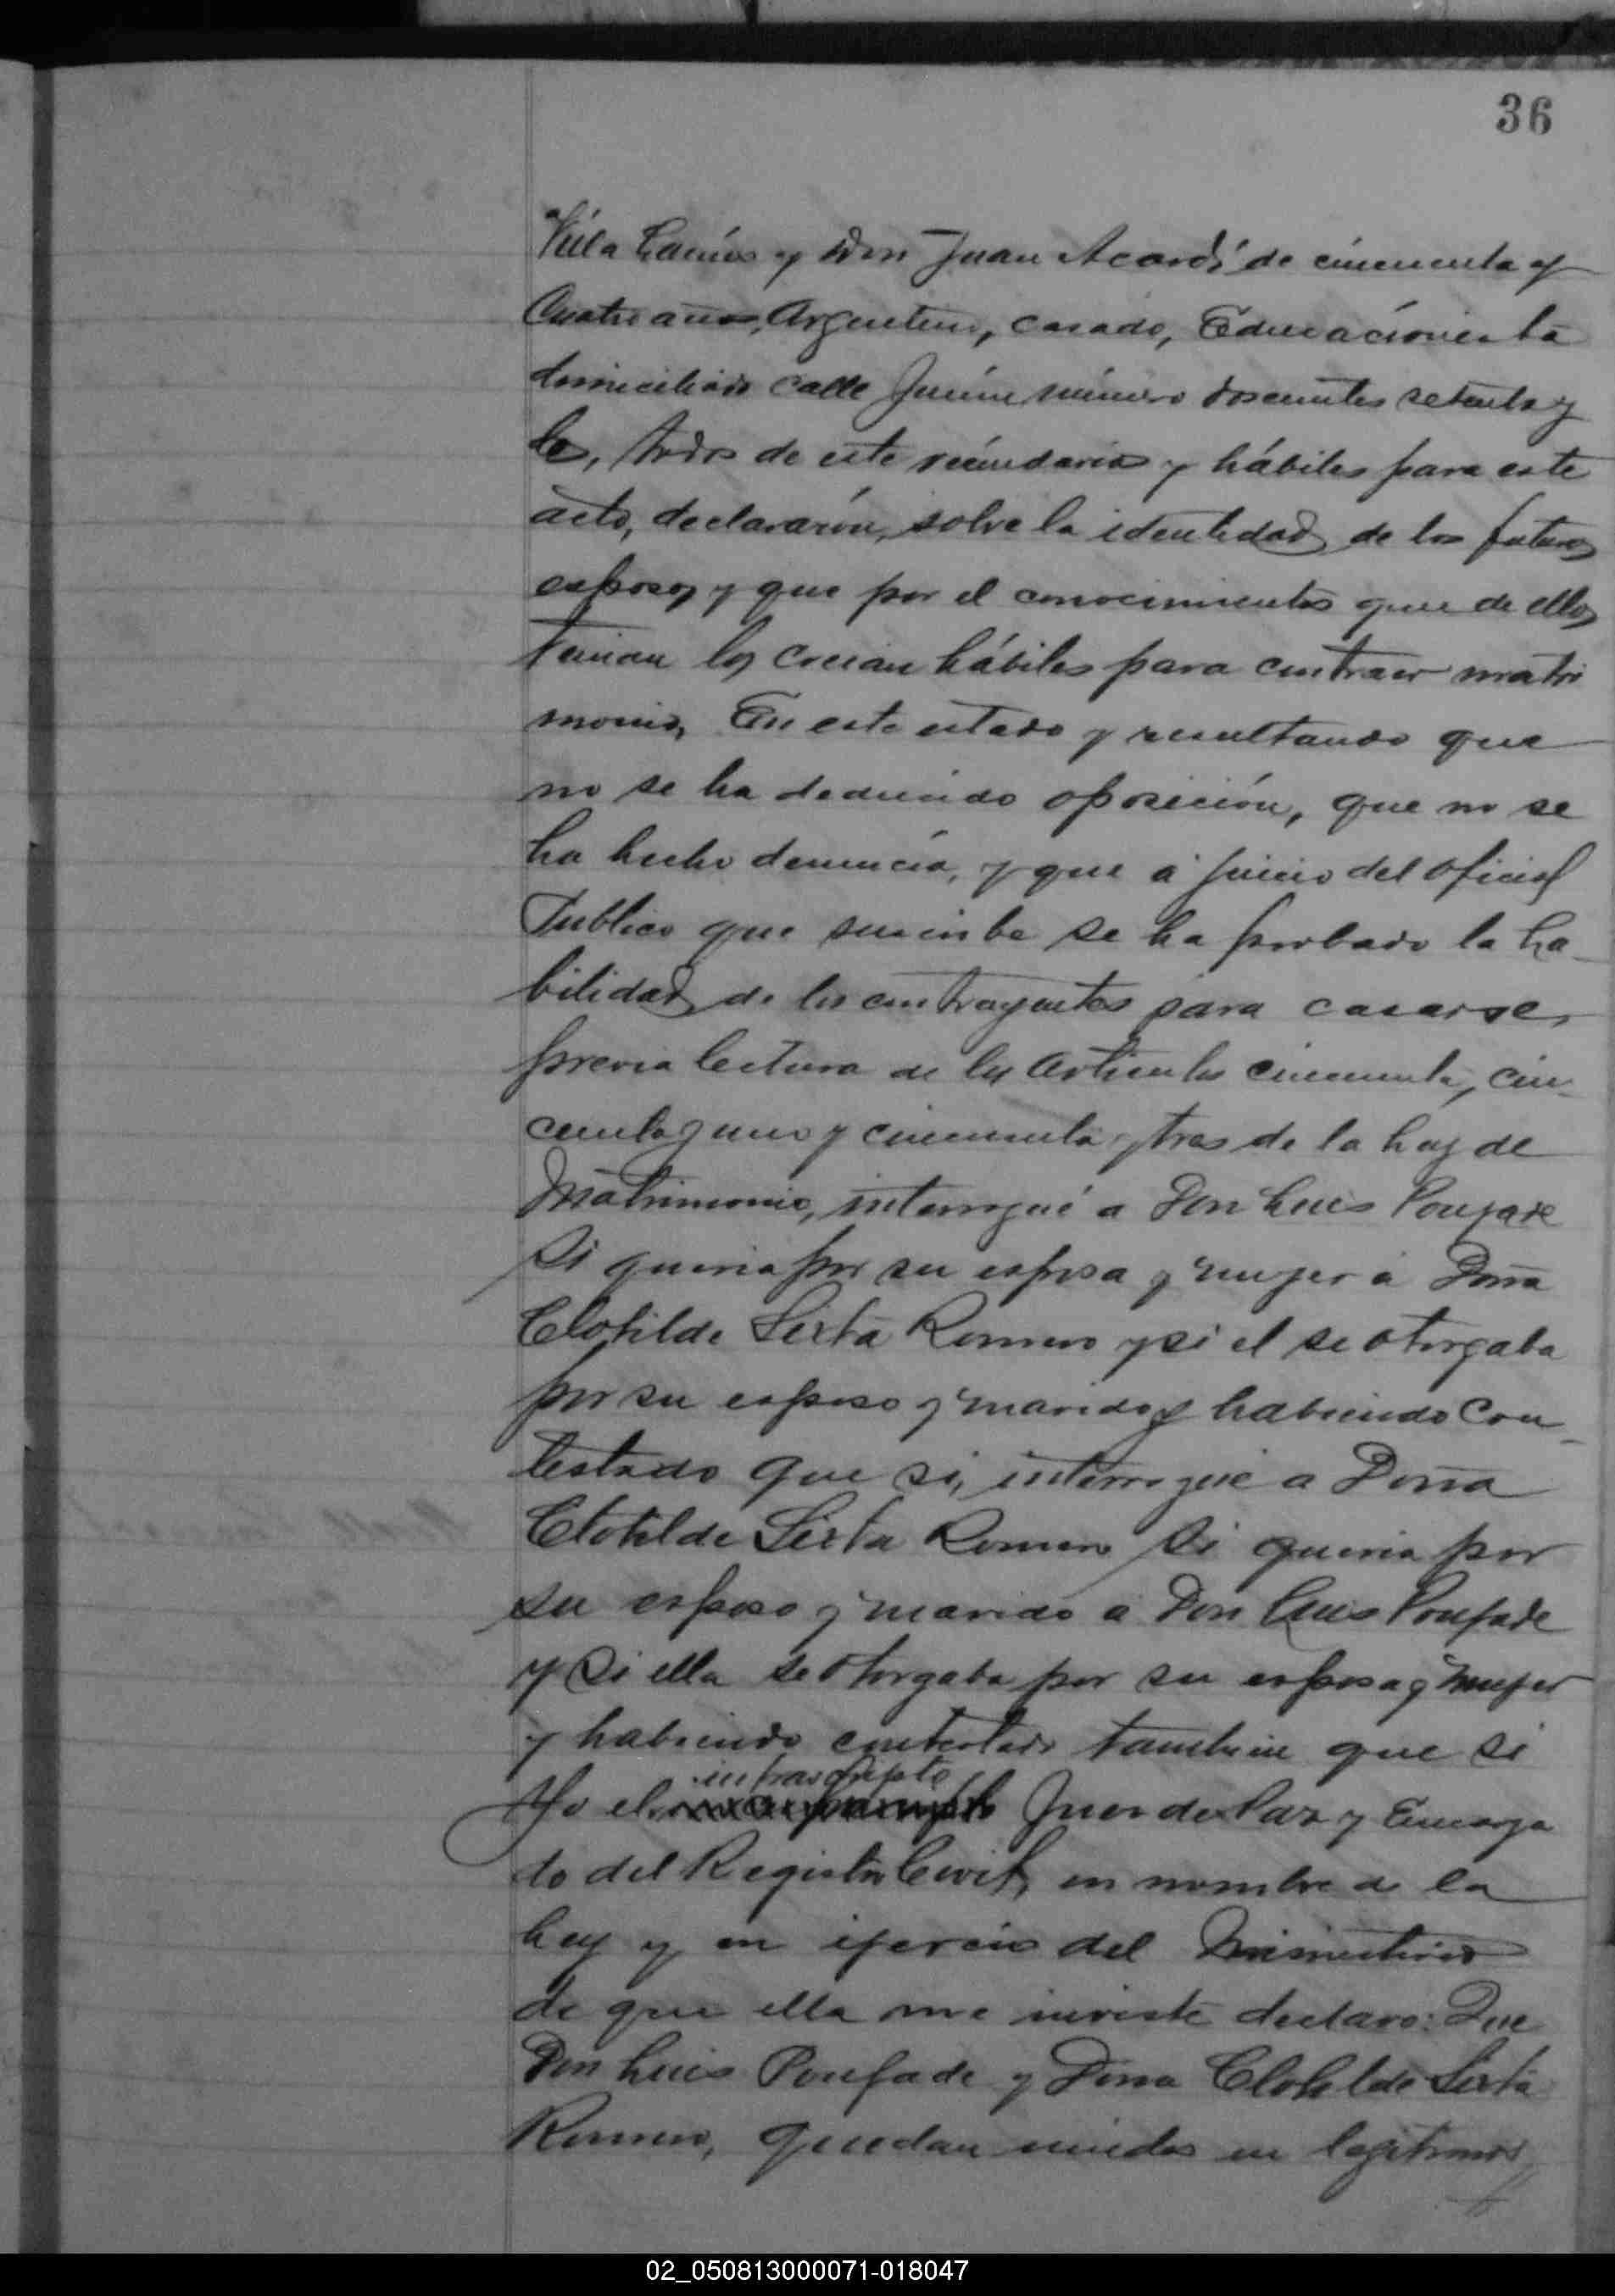 36
Villa Larios y Don Juan Acardi de cincuenta y
cuatro años, Argentino, casado, Educacionista
domiciliado calle Junin número doscientos setenta y
tres, todos de este vecindario y hábiles para este
acto, declararon, sobre la identidad de los futuros
esposos y que por el conocimiento que de ellos
tenian los creian hábiles para contraer matri
monio, En este estado y resultando que
no se ha deducido oposición, que no se
ha hecho denuncia, y que á juicio del oficial
Publico que suscribe se ha probado la ha-
bilidad de los contrayentes para casarse,
previa lectura de los artículos cincuenta, cin-
cuenta y uno y cincuenta y tres de la Ley de
Matrimonio, interrogué a Don Luis Poujade
si queria por su esposa y mujer á Doña
Clotilde Sixta Romero y si el se otorgaba
por su esposo y marido y habiendo con-
testado que si, interrogué a Doña
Clotilde Sixta Romero si queria por
su esposo y marido a Don Luis Poujade
y si ella se otorgaba por su esposa y mujer
y habiendo contestado tambien que si
infrascripto
Yo el Juez de Paz y Encarga
do del Registro Civil, en nombre de la
Ley y en ejercicio del Ministerio
de que ella me inviste declaro: Que
Don Luis Poujade y Doña Clotilde Sixta
Romero, quedan unidos en legitimo
02_050813000071-018047